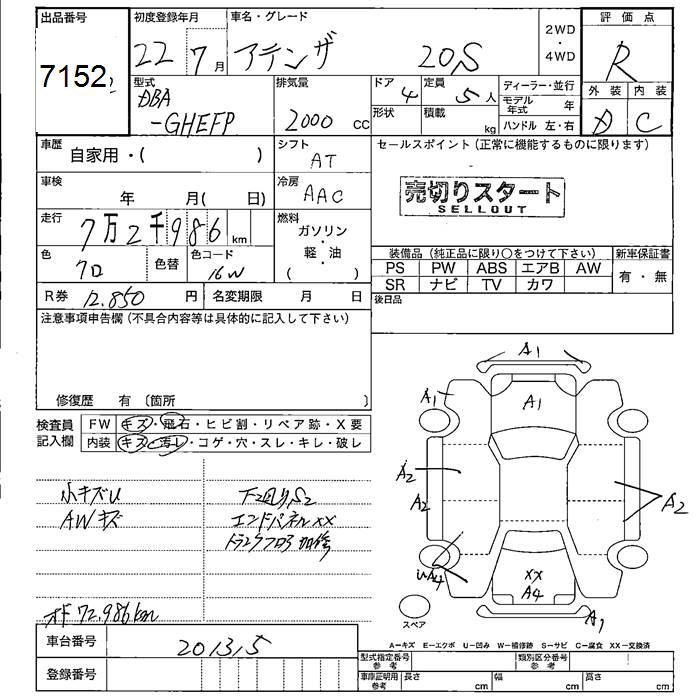 出品番号
7152
初度登録年月
22 7月
車名・グレード
アテンザ 20S
2WD
・
4WD
評価点
R
外装 内装
D C
型式
DBA
-GHEFP
排気量
2000 cc
ドア
4
定員
5人
形状
積載
kg
ディーラー・並行
モデル年式 年
ハンドル 左・右
車歴
自家用・( )
シフト
AT
セールスポイント(正常に機能するものに限ります)
車検
年 月( 日)
冷房
AAC
売切りスタート
SELLOUT
走行
7万2千986 km
燃料
ガソリン
・
軽・油
( )
色
クロ
色替
色コード
16W
装備品(純正品に限り○をつけて下さい)
新車保証書
PS PW ABS エアB AW
SR ナビ TV カワ
有・無
R券 12.850 円
名変期限 月 日
後日品
注意事項申告欄(不具合内容等は具体的に記入して下さい)
修復歴 有〔箇所 〕
検査員
記入欄
FW キズ・飛石・ヒビ割・リペア跡・X要
内装 キズ・汚レ・コゲ・穴・スレ・キレ・破レ
小キズU
AWキズ
下2回り,S2
エンドパネルXX
トランクフロア加修
オド72.986km
A1
A1
A1
A2
A2
A2
UA4
XX
A4
A1
スペア
車台番号
201315
登録番号
A=キズ E=エクボ U=凹み W=補修跡 S=サビ C=腐食 XX=交換済
型式指定番号
参考
類別区分番号
参考
車庫証明用
参考
長さ cm
幅 cm
高さ cm